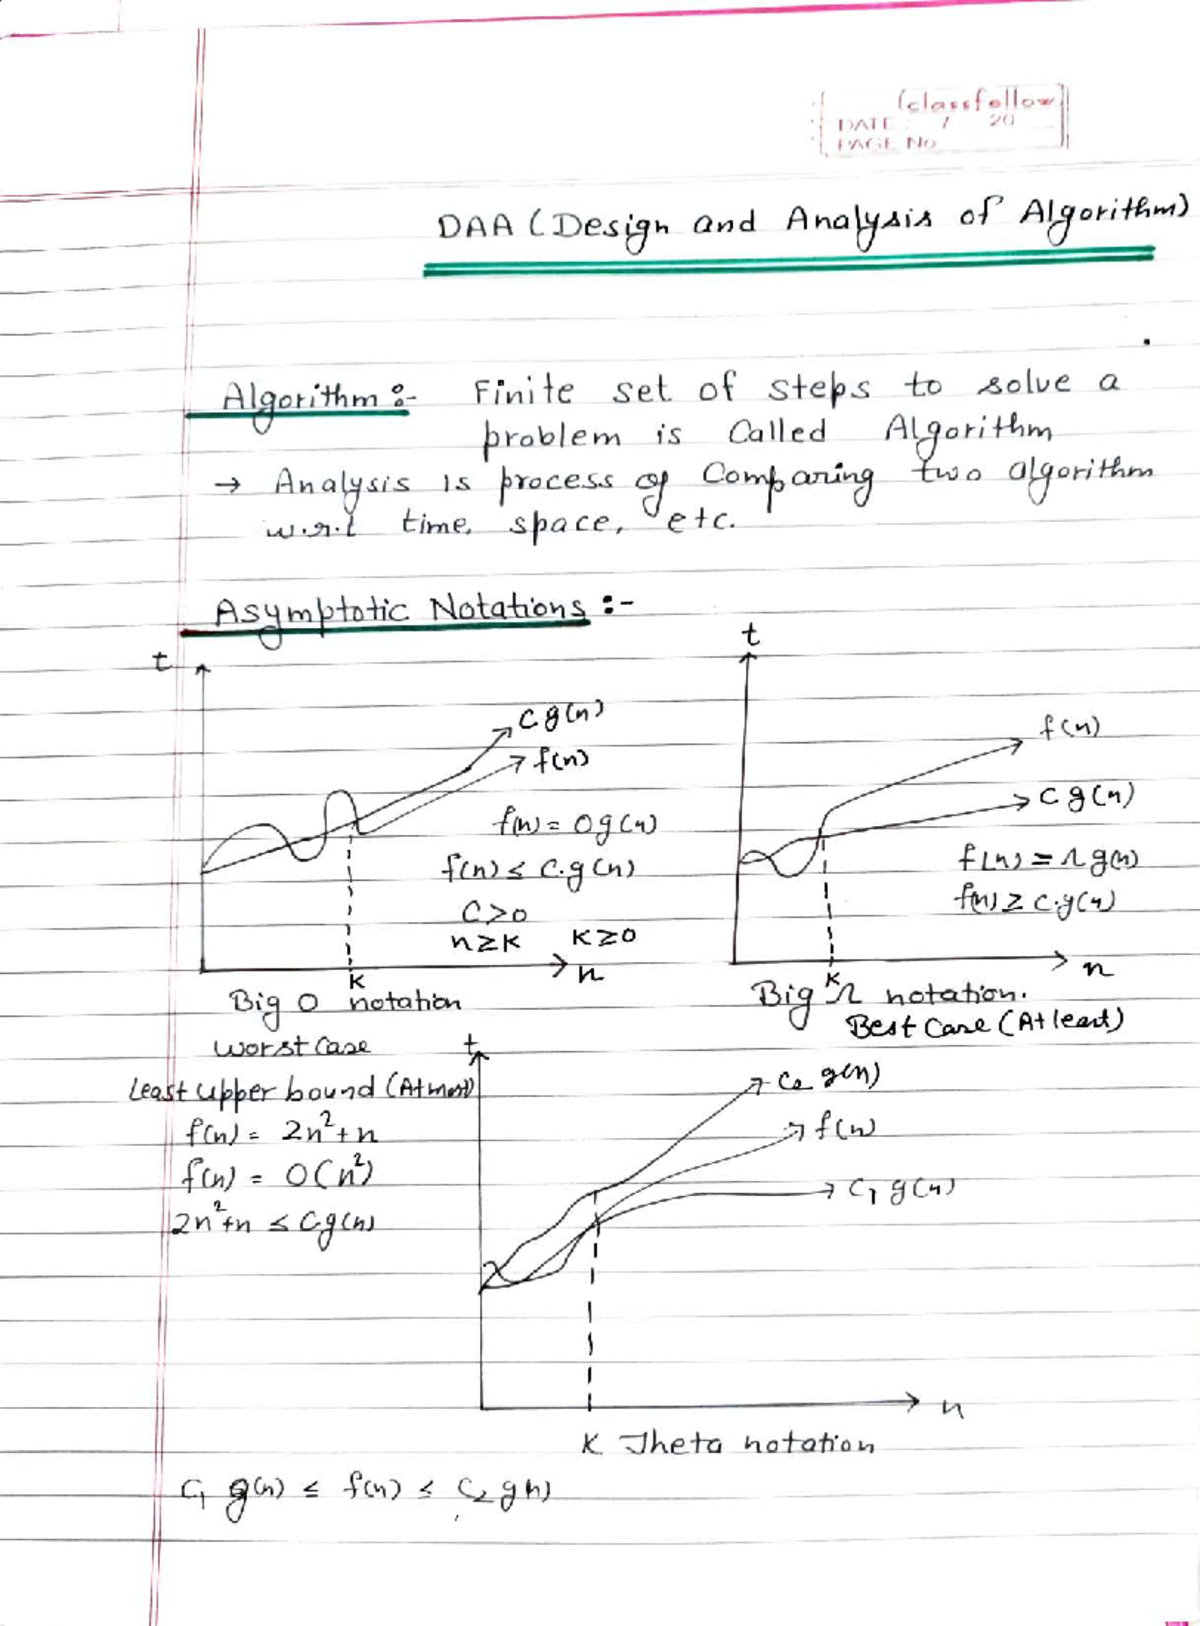 classfellow
DATE: / 20
PAGE No
DAA (Design and Analysis of Algorithm)
Algorithm :- Finite set of steps to solve a
problem is Called Algorithm
→ Analysis is process of Comparing two algorithm
w.r.t time, space, etc.
Asymptotic Notations :-
t
c g(n)
f(n)
f(n) = O g(n)
f(n) ≤ c.g(n)
C>0
n≥k k≥0
k
n
Big O notation
worst Case
Least upper bound (Atmost)
f(n) = 2n²+n
f(n) = O(n²)
2n²+n ≤ c g(n)
t
f(n)
c g(n)
f(n) = Ω g(n)
f(n) ≥ c.g(n)
k
n
Big Ω notation.
Best Case (Atleast)
t
C₂ g(n)
f(n)
C₁ g(n)
n
K Theta notation
C₁ g(n) ≤ f(n) ≤ C₂ g(n)